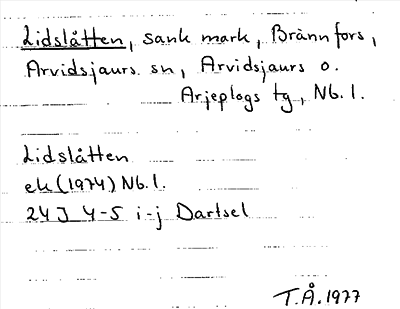 Lidslåtten, sank mark, Brännfors,
Arvidsjaurs sn, Arvidsjaurs o.
Arjeplogs tg, Nb. l.
Lidslåtten
ek (1974) Nb. l.
24J 4-5 i-j Dartsel
T.Å. 1977